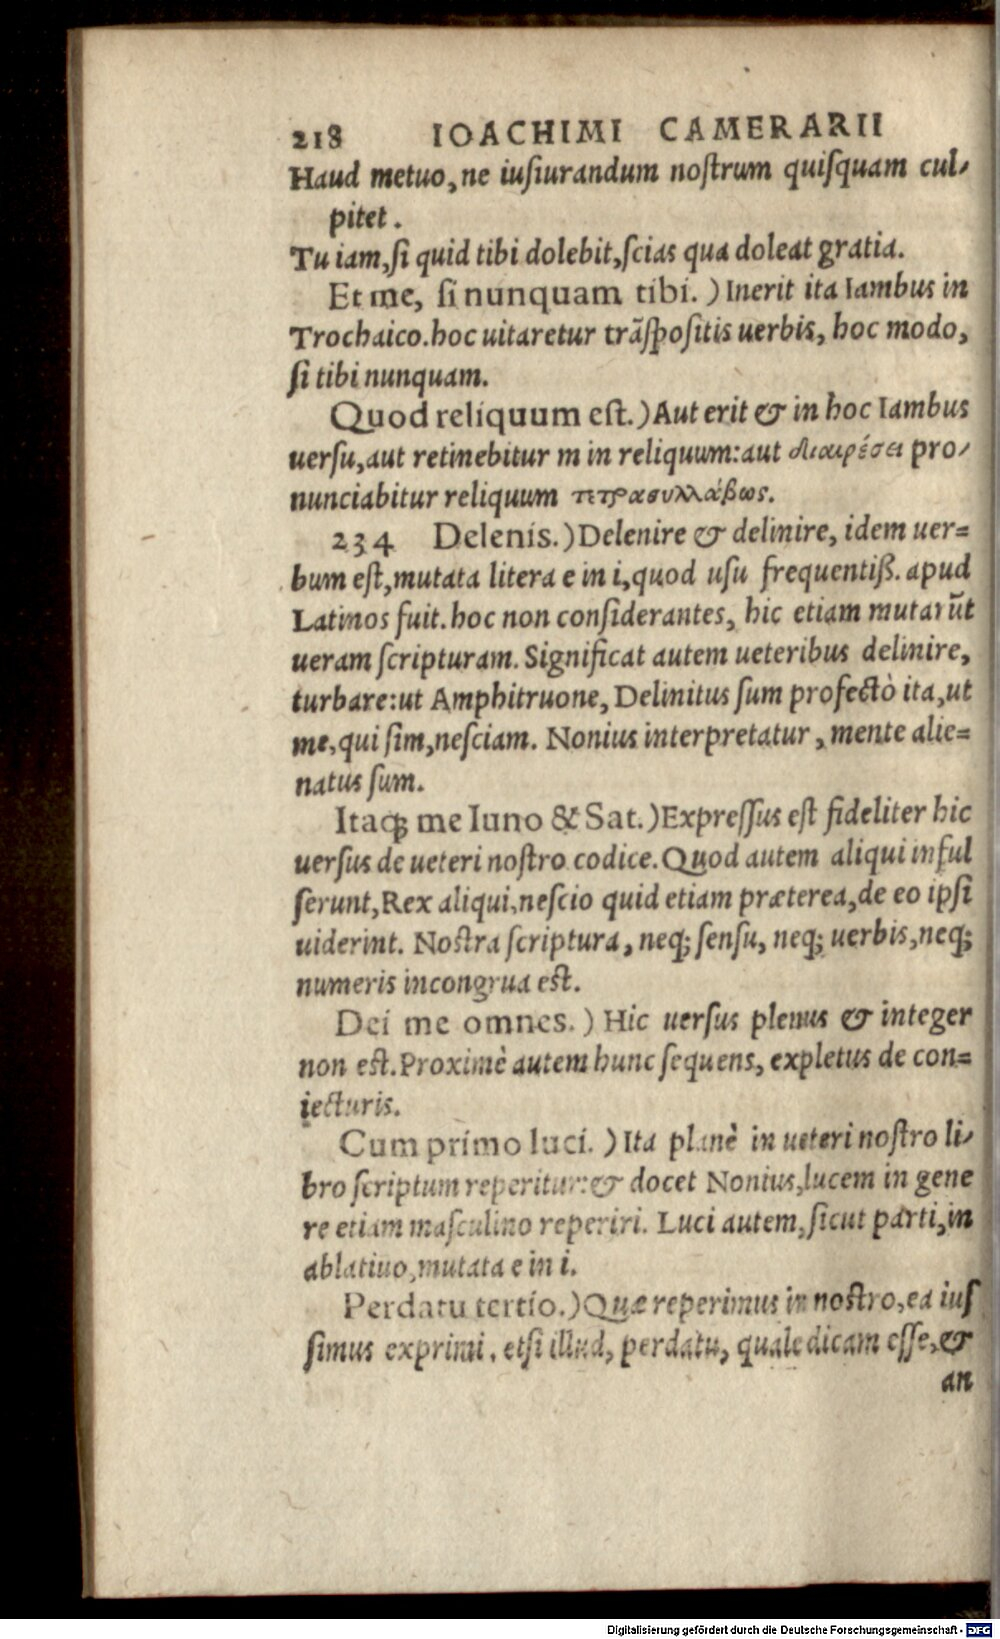 218 IOACHIMI CAMERARII
Haud metuo, ne iusiurandum nostrum quisquam cul-
pitet.
Tu iam, si quid tibi dolebit, scias qua doleat gratia.
Et me, si nunquam tibi. ) Inerit ita Iambus in
Trochaico. hoc uitaretur trãspositis uerbis, hoc modo,
si tibi nunquam.
Quod reliquum est. ) Aut erit & in hoc Iambus
uersu, aut retinebitur m in reliquum: aut διαιρέσει pro-
nunciabitur reliquum τετρασυλλάβως.
234 Delenis. ) Delenire & delinire, idem uer=
bum est, mutata litera e in i, quod usu frequentiß. apud
Latinos fuit. hoc non considerantes, hic etiam mutarũt
ueram scripturam. Significat autem ueteribus delinire,
turbare: ut Amphitruone, Delinitus sum profectò ita, ut
me, qui sim, nesciam. Nonius interpretatur, mente alie=
natus sum.
Itaq; me Iuno & Sat. ) Expressus est fideliter hic
uersus de ueteri nostro codice. Quod autem aliqui inful
serunt, Rex aliqui, nescio quid etiam præterea, de eo ipsi
uiderint. Nostra scriptura, neq; sensu, neq; uerbis, neq;
numeris incongrua est.
Dei me omnes. ) Hic uersus plenus & integer
non est. Proximè autem hunc sequens, expletus de con=
iecturis.
Cum primo luci. ) Ita planè in ueteri nostro li-
bro scriptum reperitur: & docet Nonius, lucem in gene
re etiam masculino reperiri. Luci autem, sicut parti, in
ablatiuo, mutata e in i.
Perdatu tertio. ) Quæ reperimus in nostro, ea ius
simus exprimi. etsi illud, perdatu, quale dicam esse, &
an
Digitalisierung gefördert durch die Deutsche Forschungsgemeinschaft - DFG